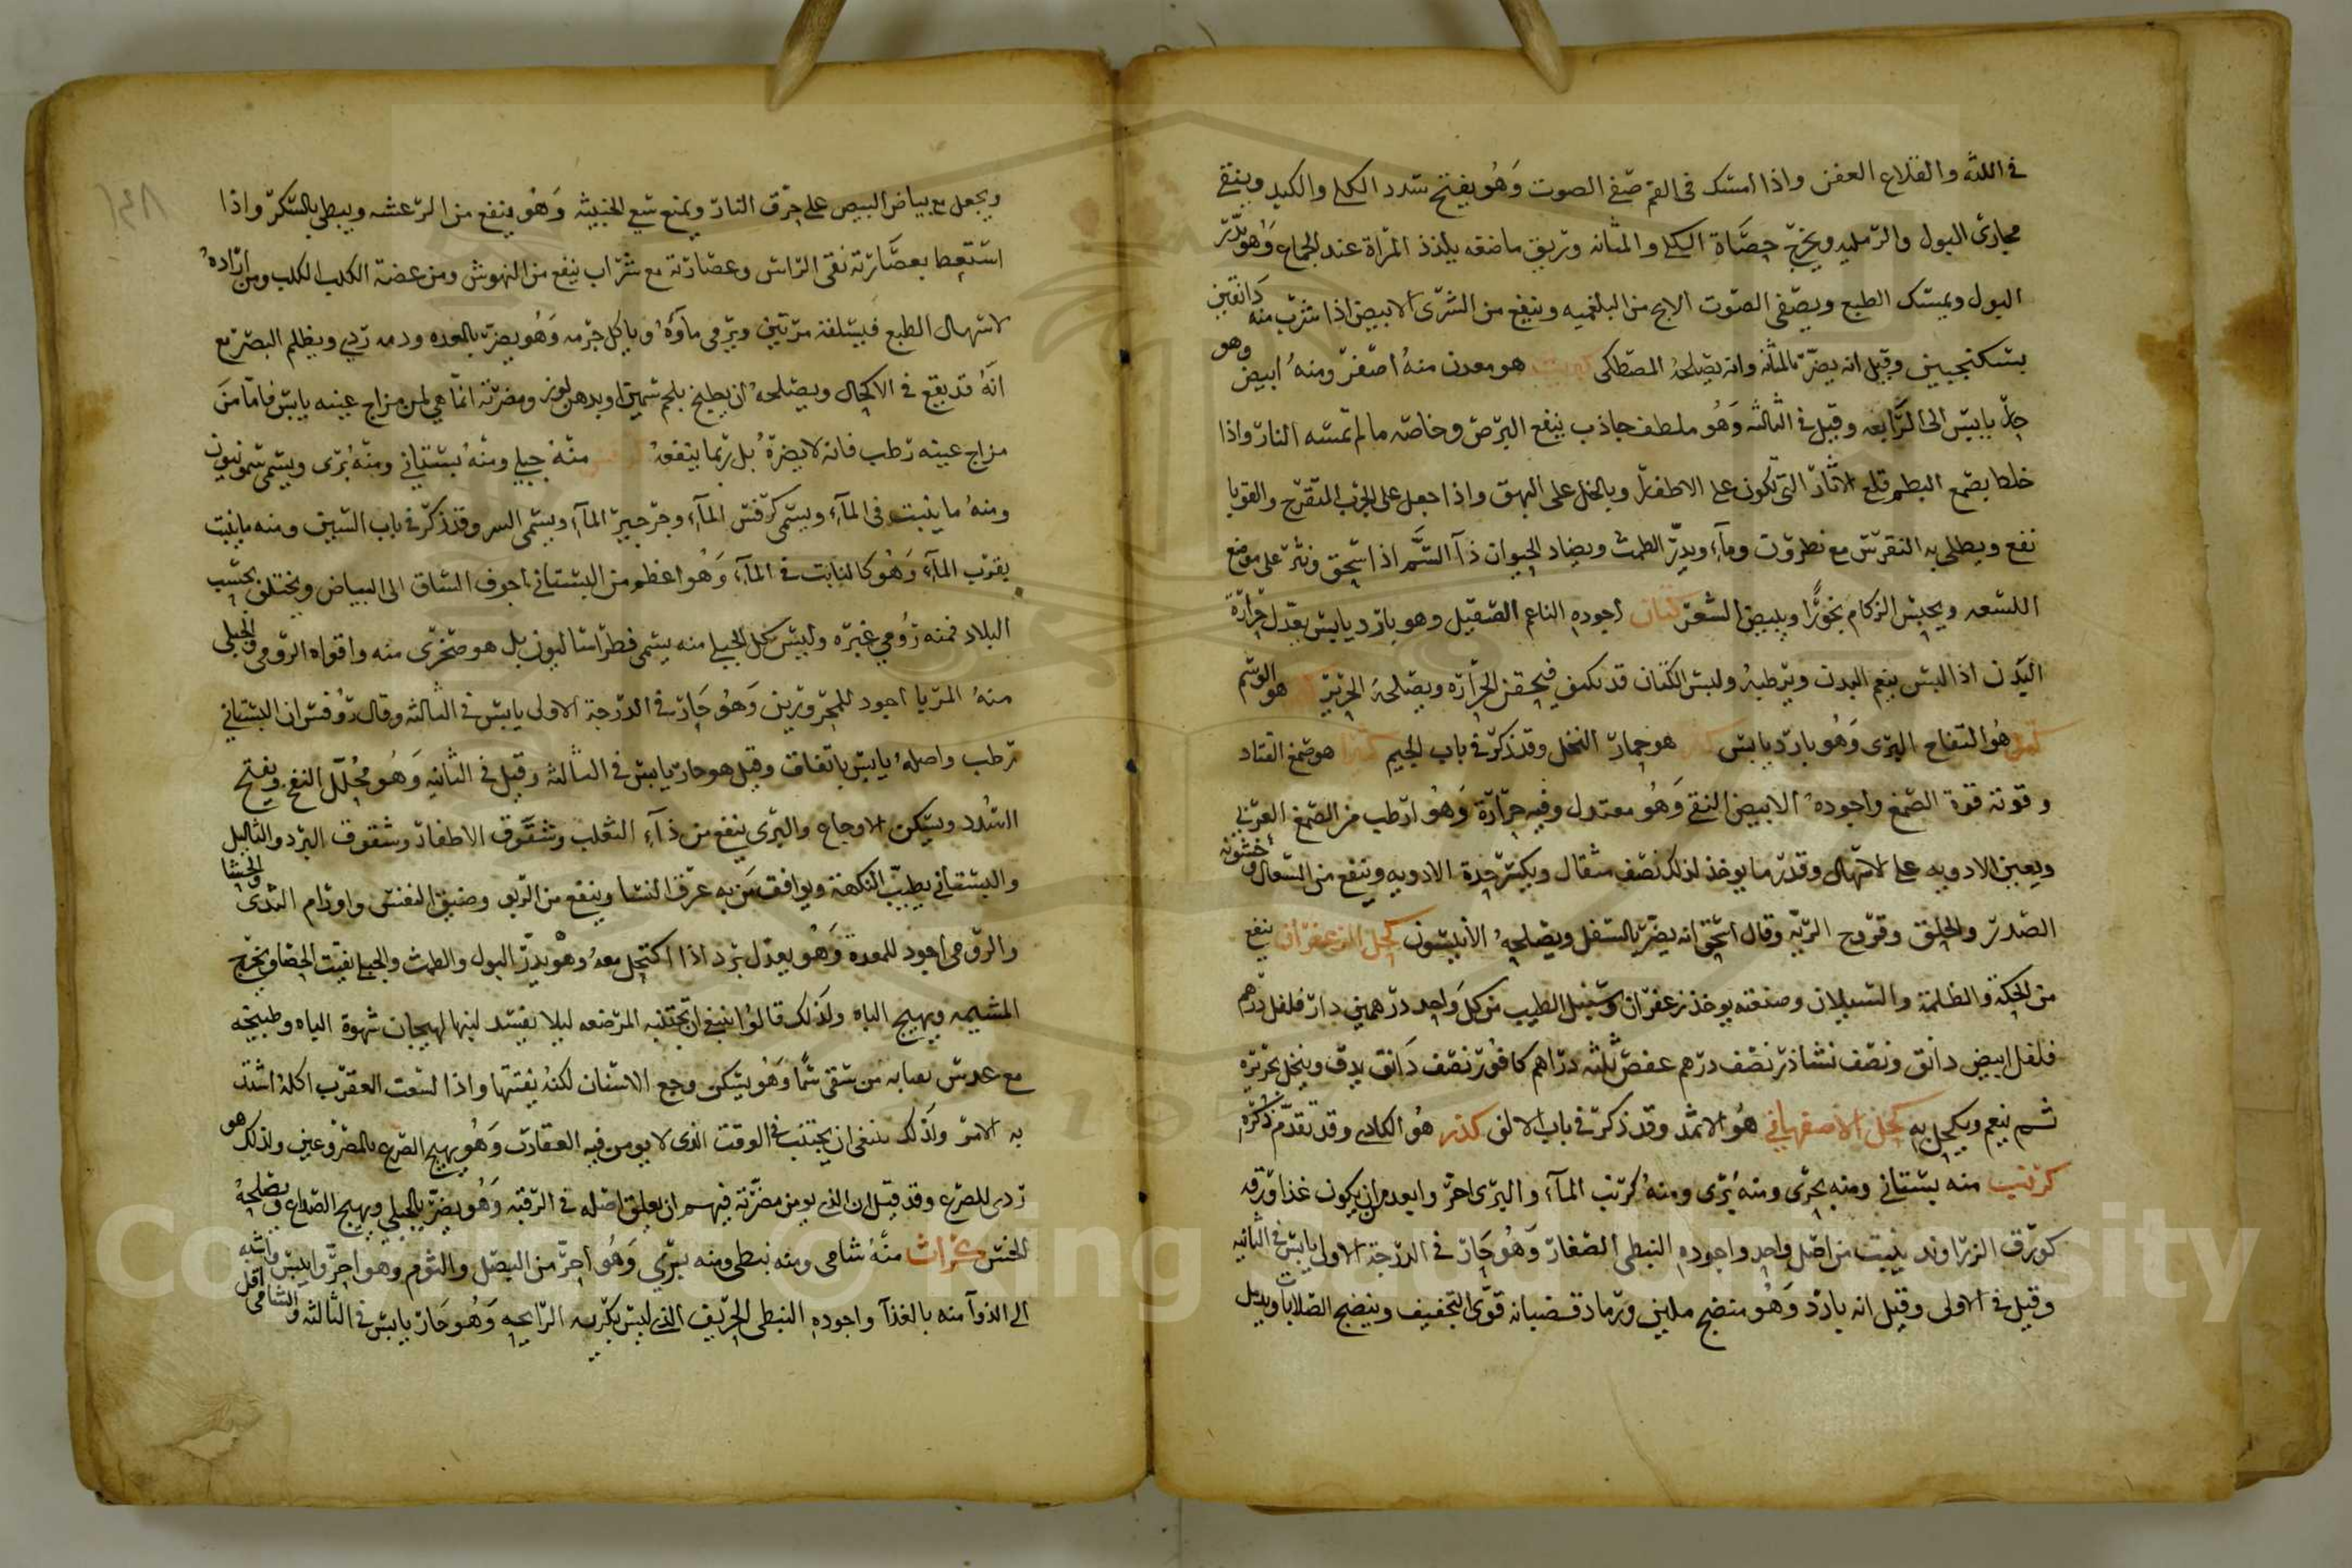 في اللثه والقلاع العفن واذا امسك في الفم صفي الصوت وهو يفتح سدد الكلي والكبد وينقي
مجاري البول والرمليه ويخرج حصاة الكلي والمثانه وتريق ماضغه يلذذ المراة عند الجماع وهو يدر
البول ويمسك الطبع ويصفي الصوت الابح من البلغميه وينفع من الشري الابيض اذا شرب منه دانقين
بسكنجبين وقيل انه يضر بالمثانه وانه يصلحه المصطكي كبريت هو معدن منه اصفر ومنه ابيض وهو
حار يابس الى الرابعه وقيل في الثالثه وهو ملطف جاذب ينفع البرص وخاصه ما لم تمسه النار واذا
خلط بصمغ البطم قلع الاثار التي تكون على الاظفار وبالخل على البهق واذا جعل على الجرب المتقرح والقوبا
نفع ويطلى به النقرس مع نطرون ومآء ويدر الطمث ويضاد الحيوان ذآ السم اذا سحق ونثر على موضع
اللسعه ويحبس الزكام بخورا ويبيض الشعر كتان اجوده الناعم الصقيل وهو بارد يابس يعدل حرارة
البدن اذا لبس ينعم البدن ويرطبه ولبس الكتان قد يكثف فيحقن الحراره ويصلحه الحرير هو الوشم
هو التفاح البري وهو بارد يابس هو جمار النخل وقد ذكر في باب الجيم كثيرا هو صمغ القتاد
وقوته قوة الصمغ واجوده الابيض النقي وهو معتدل وفيه حرارة وهو ارطب من الصمغ العربي
ويعين الادويه على الاسهال وقدر ما يوخذ لذلك نصف مثقال ويكسر حدة الادويه وينفع من السعال وخشونه
الصدر والحلق وقروح الريه وقال اسحق انه يضر بالسفل ويصلحه الانيسون كحل الزعفران ينفع
من الحكة والظلمة والسيلان وصنعته يوخذ زعفران وسنبل الطيب من كل واحد درهمين دار فلفل درهم
فلفل ابيض دانق ونصف نشاذر نصف درهم عفص ثلثه دراهم كافور نصف دانق يدق وينخل بحريره
ثم ينعم ويكحل به كحل الاصفهاني هو الاثمد وقد ذكر في باب الالف كذر هو الكادي وقد تقدم ذكره
كرنب منه بستاني ومنه بحري ومنه بري ومنه كرنب المآء والبري احر وابعد من ان يكون غذا ورقه
كورق الزراوند ينبت من اصل واحد واجوده النبطي الصغار وهو حار في الدرجة الاولى يابس في الثانيه
وقيل في الاولى وقيل انه بارد وهو منضج ملين ورماد قضبانه قوي التجفيف وينضج الصلابات ويدمل
ويجعل مع بياض البيض على حرق النار ويمنع سعي الخبيثه وهو ينفع من الرعشه ويبطي بالسكر واذا
استعط بعصارته نقى الراس وعصارته مع شراب ينفع من النهوش ومن عضة الكلب الكلب ومن اراده
لاسهال الطبع فيسلقه مرتين ويرمي مآؤه وياكل جرمه وهو يضر بالمعده ودمه ردي ويظلم البصر مع
انه قد يقع في الاكحال ويصلحه ان يطبخ بلحم سمين او بدهن لوز ومضرته انما هي لمن مزاج عينه يابس فاما من
مزاج عينه رطب فانه لا يضره بل ربما ينفعه كرفس منه جبلي ومنه بستاني ومنه بري ويسمى سمرنيون
ومنه ما ينبت في المآء ويسمى كرفس المآء وجرجير المآء ويسمى السر وقد ذكر في باب السين ومنه ما ينبت
بقرب المآء وهو كالنابت في المآء وهو اعظم من البستاني اجوف الساق الى البياض ويختلف بحسب
البلاد فمنه رومي غيره وليس كل الجبلي منه يسمى فطراسا ليون بل هو صخري منه واقواه الرومي والجبلي
منه المربا اجود للمحرورين وهو حار في الدرجة الاولى يابس في الثالثه وقال روفس ان البستاني
رطب واصله يابس باتفاق وقيل هو حار يابس في الثالثه وقيل في الثانيه وهو محلل النفخ ويفتح
السدد ويسكن الاوجاع والبري ينفع من ذآء الثعلب وشقوق الاظفار وشقوق البرد والثاليل
والبستاني يطيب النكهة ويوافق من به عرق النسا وينفع من الربو وضيق النفس واورام الثدي والحشا
والرومي اجود للمعدة وهو يعدل برد اذا اكتحل معه وهو يدر البول والطمث والجبلي يفتت الحصا ويخرج
المشيمه ويهيج الباه ولذلك قالوا ينبغي ان تجتنبه المرضعه ليلا يفسد لبنها لهيجان شهوة الباه وطبيخه
مع عدس يعيابه من سقي سما وهو يسكن وجع الاسنان لكنه يفتتها واذا لسعت العقرب اكله اشتد
به الامر ولذلك ينبغي ان يجتنب في الوقت الذي لا يومن فيه العقارب وهو يهيج الصرع بالمصروعين ولذلك هو
ردي للصرع وقد قيل ان الذي يومن مضرته فيهم ان يعلق اصله في الرقبه وهو يضر بالحبلي ويهيج الصداع ويصلحه
الخس كراث منه شامي ومنه نبطي ومنه بري وهو احر من البصل والثوم وهو احر وايبس واشبه
الى الدوآ منه بالغذآ واجوده النبطي الحريف الذي ليس بكريه الرايحه وهو حار يابس في الثالثه والشامي اقل